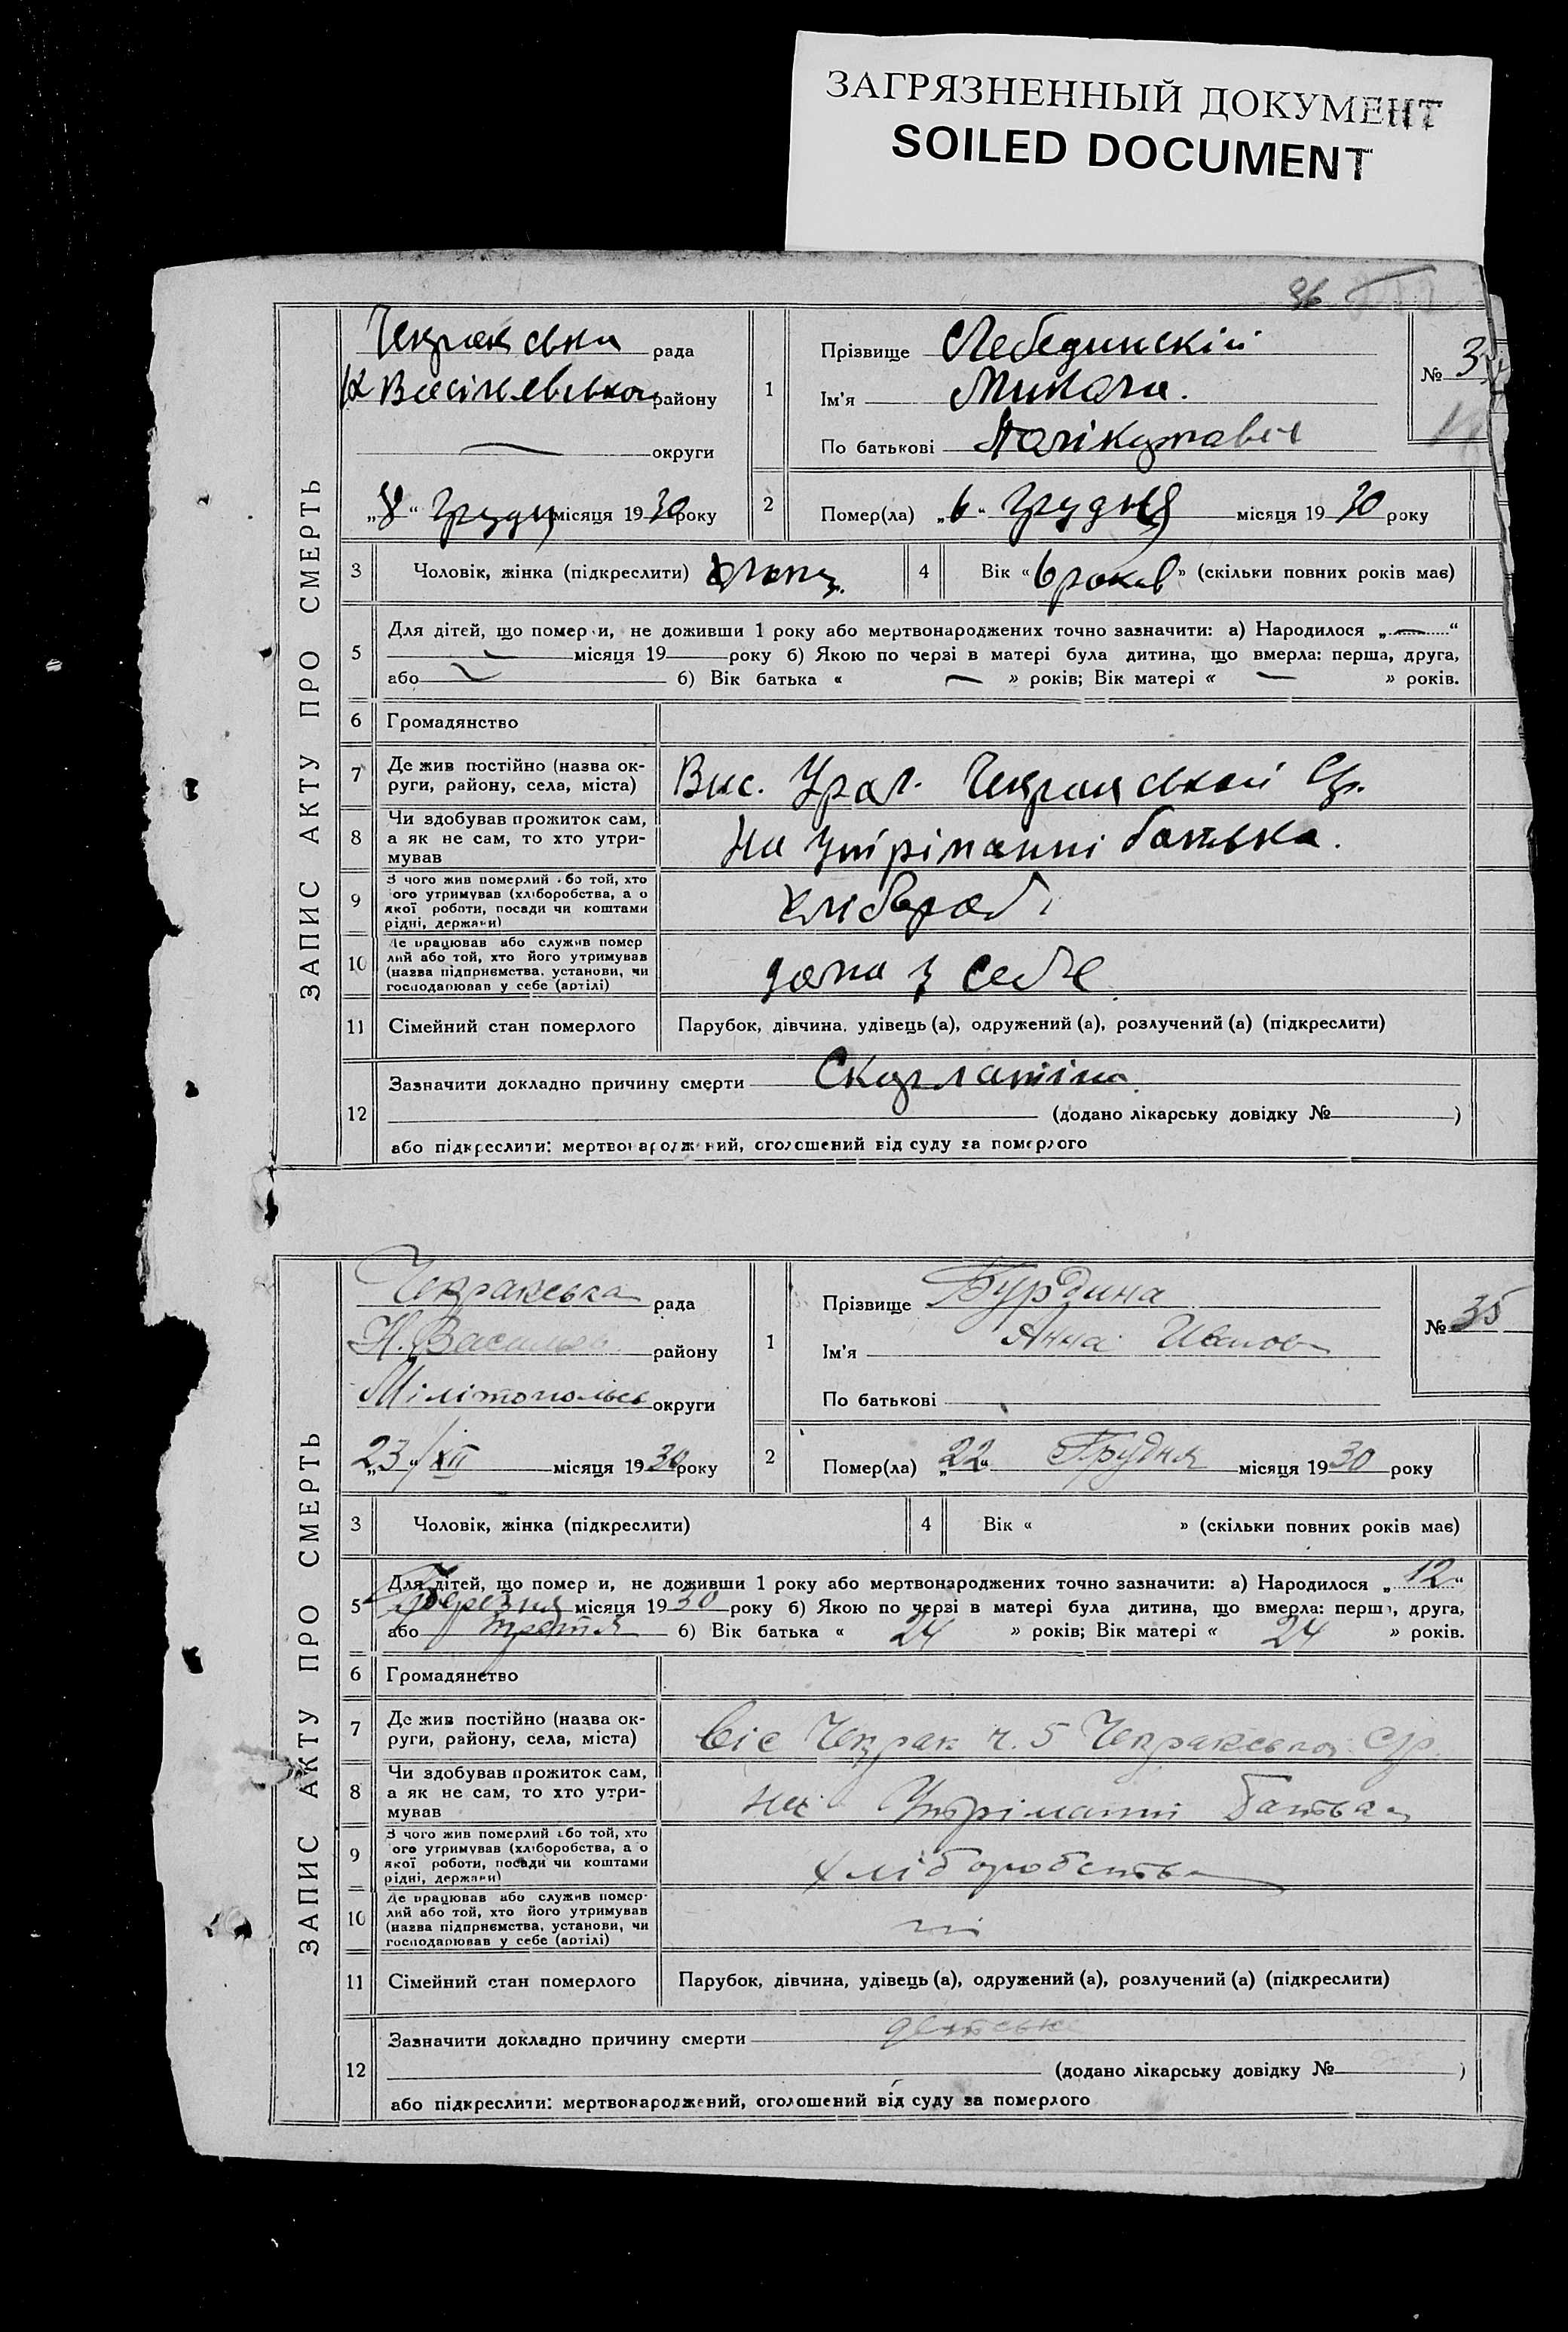 ЗАГРЯЗНЕННЫЙ ДОКУМЕНТ
SOILED DOCUMENT
96
ЗАПИС АКТУ ПРО СМЕРТЬ
рада
району
округи
„8“ грудня місяця 1930 року
1
Прізвище Лебединскій
Ім'я Микола.
По батькові
№ 3
2
Помер(ла) „6“ грудня місяця 1930 року
3 Чоловік, жінка (підкреслити) хлопец.
4 Вік «6 роков» (скільки повних років має)
5 Для дітей, що померли, не доживши 1 року або мертвонароджених точно зазначити: а) Народилося „ — “
— місяця 19 року б) Якою по черзі в матері була дитина, що вмерла: перша, друга,
або — б) Вік батька « — » років; Вік матері « — » років.
6 Громадянство
7 Де жив постійно (назва ок-
руги, району, села, міста)
Вис. Урал.
8 Чи здобував прожиток сам,
а як не сам, то хто утри-
мував
На утріманні батька.
9 З чого жив померлий або той, хто
ого утримував (хліборобства, а о
якої роботи, посади чи коштами
рідні, держави)
хлебороб
10 Де працював або служив помер
лий або той, хто його утримував
(назва підприємства, установи, чи
господарював у себе (артілі)
дома у себе
11 Сімейний стан померлого Парубок, дівчина, удівець (а), одружений (а), розлучений (а) (підкреслити)
12 Зазначити докладно причину смерти Скарлатіна.
(додано лікарську довідку № )
або підкреслити: мертвонароджений, оголошений від суду за померлого
ЗАПИС АКТУ ПРО СМЕРТЬ
Чекракська рада
Н. Васильев. району
Мілітопольськ округи
„23“/XII місяця 1930 року
1
Прізвище Бурдина
Ім'я Анна Иванов
По батькові
№ 35
2
Помер(ла) „22“ Грудня місяця 1930 року
3 Чоловік, жінка (підкреслити)
4 Вік « » (скільки повних років має)
5 Для дітей, що померли, не доживши 1 року або мертвонароджених точно зазначити: а) Народилося „12“
Березня місяця 1930 року б) Якою по черзі в матері була дитина, що вмерла: перша, друга,
або третя б) Вік батька « 24 » років; Вік матері « 24 » років.
6 Громадянство
7 Де жив постійно (назва ок-
руги, району, села, міста)
Віс Чекрак ч. 5 Чекракської с/р.
8 Чи здобував прожиток сам,
а як не сам, то хто утри-
мував
на Утріманні Батька
9 З чого жив померлий або той, хто
ого утримував (хліборобства, а о
якої роботи, посади чи коштами
рідні, держави)
хліборобство
10 Де працював або служив помер-
лий або той, хто його утримував
(назва підприємства, установи, чи
господарював у себе (артілі)
ні
11 Сімейний стан померлого Парубок, дівчина, удівець (а), одружений (а), розлучений (а) (підкреслити)
12 Зазначити докладно причину смерти
(додано лікарську довідку № )
або підкреслити: мертвонароджений, оголошений від суду за померлого